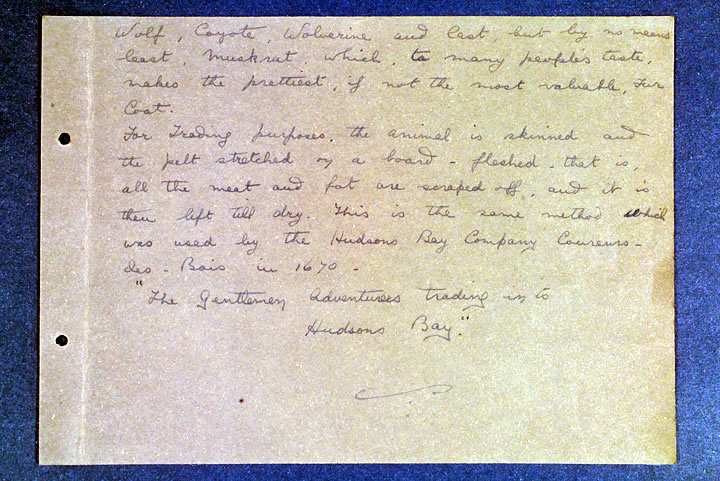 Wolf, Coyote, Wolverine and last, but by no means
least, Muskrat which, to many people's taste,
makes the prettiest, if not the most valuable, Fur
Coat.
For Trading purposes, the animal is skinned and
the pelt stretched on a board - fleshed - that is,
all the meat and fat are scraped off, and it is
then left till dry. This is the same method which
was used by the Hudsons Bay Company Coureurs -
des - Bois in 1670 -
"The Gentlemen Adventurers trading in to
Hudsons Bay."